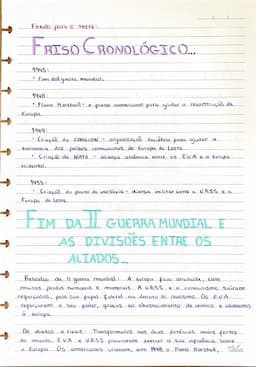 Estudo para o teste:
FRISO CRONOLÓGICO...
1945:
• Fim da II guerra mundial.
1948:
• Plano Marshall - o plano americano para ajudar a reconstrução da
Europa.
1949:
• Criação do COMECON - organização soviética para ajudar a
economia dos países comunistas da Europa de Leste.
• Criação da NATO - aliança atlântica entre os E.U.A e a Europa
ocidental.
1955:
• Criação do pacto de Varsóvia - aliança militar entre a U.R.S.S e a
Europa de Leste
FIM DA II GUERRA MUNDIAL E
AS DIVISÕES ENTRE OS
ALIADOS...
Rescaldo da II guerra mundial: A europa ficou arruinada, com
muitas perdas humanas e materiais. A U.R.S.S. e o comunismo saíram
reforçados, pelo seu papel fulcral na derrota do nazismo. Os E.U.A
reforçaram o seu poder, graças ao abastecimento de armas e alimentos
à europa.
De aliados a rivais: Transformados nas duas potências mais fortes
do mundo, E.U.A e U.R.S.S procuraram exercer a sua influência sobre
a Europa. Os americanos criaram, em 1948, o Plano Marshall,